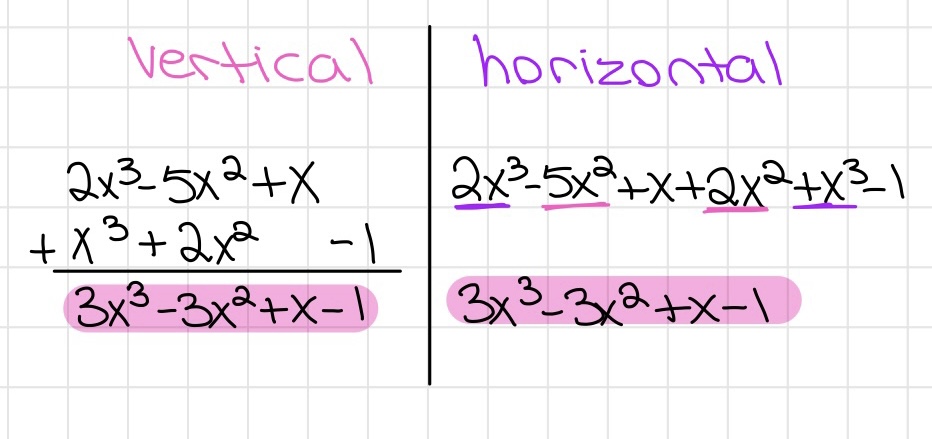 vertical
2x³-5x²+x
+x³+2x² -1
3x³-3x²+x-1
horizontal
2x³-5x²+x+2x²+x³-1
3x³-3x²+x-1